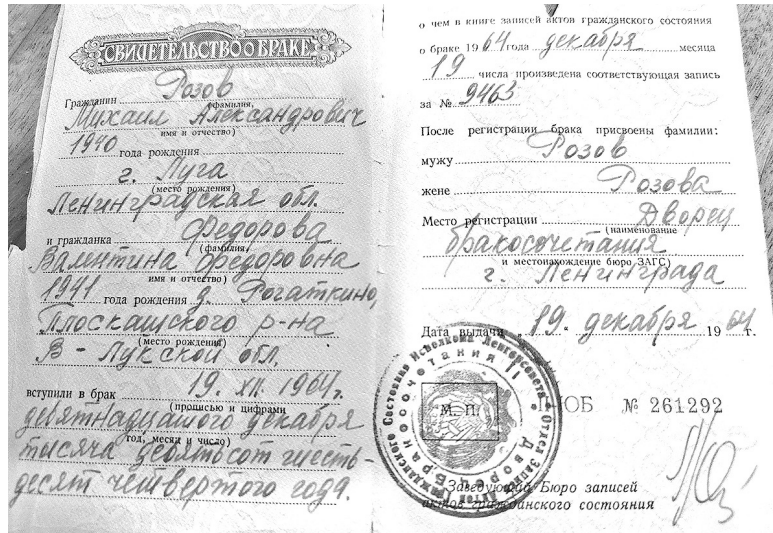 СВИДЕТЕЛЬСТВО О БРАКЕ
Гражданин Розов
(фамилия,
Михаил Александрович
имя и отчество)
1940 года рождения
г. Луга
(место рождения)
Ленинградская обл.
и гражданка Федорова
(фамилия,
Валентина Федоровна
имя и отчество)
1941 года рождения д. Рогаткино,
Плоскашского р-на
(место рождения)
В-Лукской обл.
вступили в брак 19. XII. 1964г.
(прописью и цифрами
девятнадцатого декабря
год, месяц и число)
тысяча девятьсот шесть-
десят четвертого года.
о чем в книге записей актов гражданского состояния
о браке 1964 года декабря месяца
19 числа произведена соответствующая запись
за № 9463
После регистрации брака присвоены фамилии:
мужу Розов
жене Розова
Место регистрации Дворец
(наименование
бракосочетания
и местонахождение бюро ЗАГС)
г. Ленинграда
Дата выдачи „19" декабря 1964 г.
М. П.
ЮБ № 261292
Заведующий Бюро записей
актов гражданского состояния